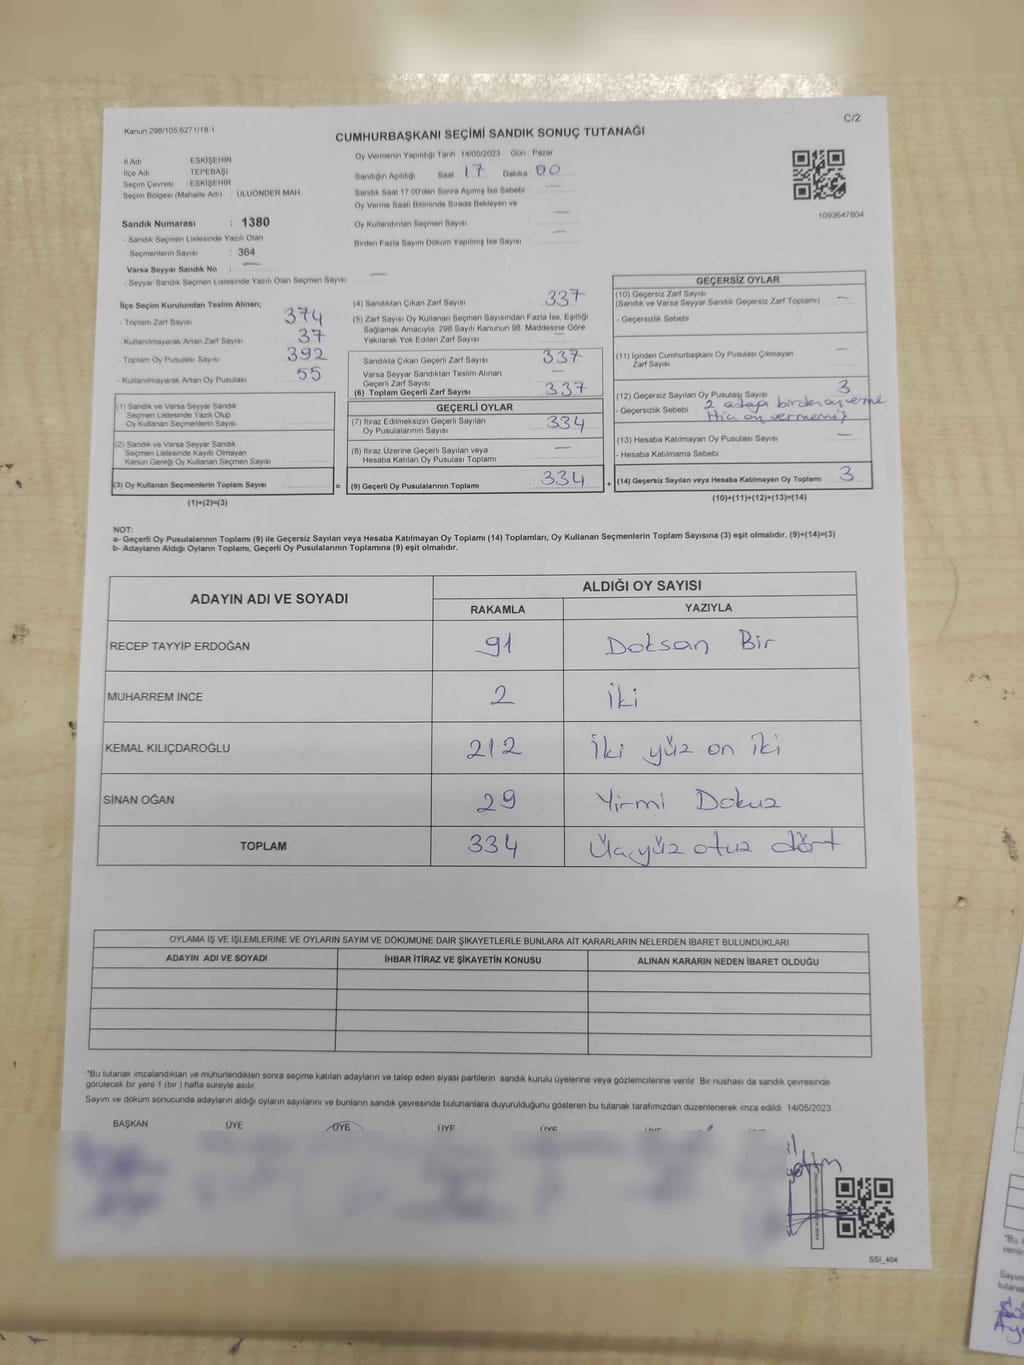 Kanun 298/105;6271/18-1
C/2
CUMHURBAŞKANI SEÇİMİ SANDIK SONUÇ TUTANAĞI
İl Adı : ESKİŞEHİR
İlçe Adı : TEPEBAŞI
Seçim Çevresi : ESKİŞEHİR
Seçim Bölgesi (Mahalle Adı) : ULUÖNDER MAH.
Oy Vermenin Yapıldığı Tarih :14/05/2023 Gün : Pazar
Sandığın Açıldığı Saat : 17 Dakika : 00
Sandık Saat 17:00'den Sonra Açılmış İse Sebebi : —
Oy Verme Saati Bitiminde Sırada Bekleyen ve
Oy Kullandırılan Seçmen Sayısı —
Birden Fazla Sayım Döküm Yapılmış İse Sayısı —
1093647804
Sandık Numarası : 1380
- Sandık Seçmen Listesinde Yazılı Olan
Seçmenlerin Sayısı : 364
Varsa Seyyar Sandık No : —
- Seyyar Sandık Seçmen Listesinde Yazılı Olan Seçmen Sayısı —
İlçe Seçim Kurulundan Teslim Alınan;
- Toplam Zarf Sayısı 374
- Kullanılmayarak Artan Zarf Sayısı 37
- Toplam Oy Pusulası Sayısı 392
- Kullanılmayarak Artan Oy Pusulası 55
(1) Sandık ve Varsa Seyyar Sandık
Seçmen Listesinde Yazılı Olup
Oy Kullanan Seçmenlerin Sayısı
(2) Sandık ve Varsa Seyyar Sandık
Seçmen Listesinde Kayıtlı Olmayan
Kanun Gereği Oy Kullanan Seçmen Sayısı
(3) Oy Kullanan Seçmenlerin Toplam Sayısı
(1)+(2)=(3)
(4) Sandıktan Çıkan Zarf Sayısı 337
(5) Zarf Sayısı Oy Kullanan Seçmen Sayısından Fazla İse, Eşitliği
Sağlamak Amacıyla, 298 Sayılı Kanunun 98. Maddesine Göre
Yakılarak Yok Edilen Zarf Sayısı —
Sandıkta Çıkan Geçerli Zarf Sayısı 337
Varsa Seyyar Sandıktan Teslim Alınan
Geçerli Zarf Sayısı —
(6) Toplam Geçerli Zarf Sayısı 337
GEÇERLİ OYLAR
(7) İtiraz Edilmeksizin Geçerli Sayılan
Oy Pusulalarının Sayısı 334
(8) İtiraz Üzerine Geçerli Sayılan veya
Hesaba Katılan Oy Pusulası Toplamı —
= (9) Geçerli Oy Pusulalarının Toplamı 334
GEÇERSİZ OYLAR
(10) Geçersiz Zarf Sayısı
(Sandık ve Varsa Seyyar Sandık Geçersiz Zarf Toplamı) —
- Geçersizlik Sebebi :
(11) İçinden Cumhurbaşkanı Oy Pusulası Çıkmayan
Zarf Sayısı —
(12) Geçersiz Sayılan Oy Pusulası Sayısı 3
- Geçersizlik Sebebi : 2 adaya birden oy verme
Hiç oy vermemiş
(13) Hesaba Katılmayan Oy Pusulası Sayısı —
- Hesaba Katılmama Sebebi :
+ (14) Geçersiz Sayılan veya Hesaba Katılmayan Oy Toplamı 3
(10)+(11)+(12)+(13)=(14)
NOT:
a- Geçerli Oy Pusulalarının Toplamı (9) ile Geçersiz Sayılan veya Hesaba Katılmayan Oy Toplamı (14) Toplamları, Oy Kullanan Seçmenlerin Toplam Sayısına (3) eşit olmalıdır. (9)+(14)=(3)
b- Adayların Aldığı Oyların Toplamı, Geçerli Oy Pusulalarının Toplamına (9) eşit olmalıdır.
ADAYIN ADI VE SOYADI
ALDIĞI OY SAYISI
RAKAMLA YAZIYLA
RECEP TAYYİP ERDOĞAN 91 Doksan Bir
MUHARREM İNCE 2 İki
KEMAL KILIÇDAROĞLU 212 İki yüz on iki
SİNAN OĞAN 29 Yirmi Dokuz
TOPLAM 334 Üç yüz otuz dört
OYLAMA İŞ VE İŞLEMLERİNE VE OYLARIN SAYIM VE DÖKÜMÜNE DAİR ŞİKAYETLERLE BUNLARA AİT KARARLARIN NELERDEN İBARET BULUNDUKLARI
ADAYIN ADI VE SOYADI İHBAR İTİRAZ VE ŞİKAYETİN KONUSU ALINAN KARARIN NEDEN İBARET OLDUĞU
*Bu tutanak imzalandıktan ve mühürlendikten sonra seçime katılan adayların ve talep eden siyasi partilerin sandık kurulu üyelerine veya gözlemcilerine verilir. Bir nüshası da sandık çevresinde
görülecek bir yere 1 (bir) hafta süreyle asılır.
Sayım ve döküm sonucunda adayların aldığı oyların sayılarını ve bunların sandık çevresinde bulunanlara duyurulduğunu gösteren bu tutanak tarafımızdan düzenlenerek imza edildi. 14/05/2023
BAŞKAN ÜYE ÜYE ÜYE ÜYE
SSI_404